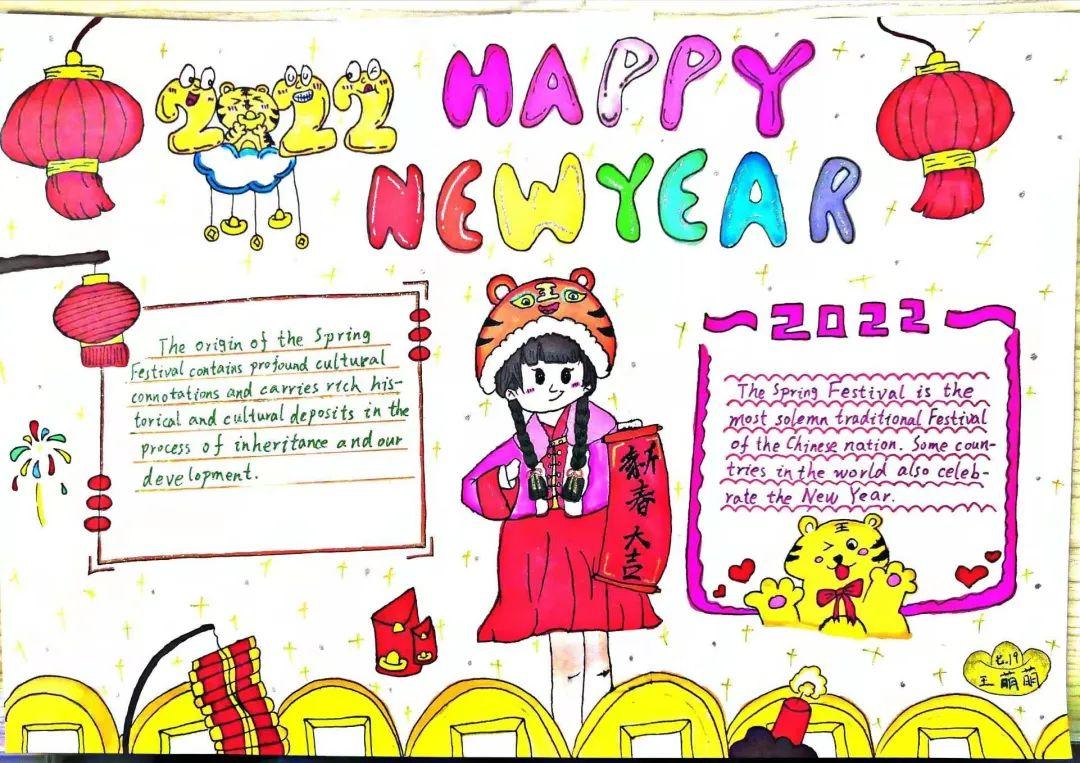 2022
HAPPY
NEW YEAR
The origin of the Spring
Festival contains profound cultural
connotations and carries rich his-
torical and cultural deposits in the
process of inheritance and our
development.
2022
The Spring Festival is the
most solemn traditional Festival
of the Chinese nation. Some coun-
tries in the world also celeb-
rate the New Year.
王
新春大吉
王
七.19
王萌萌